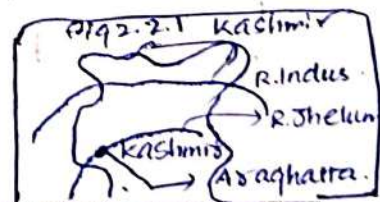 Fig 2.2.1 Kashmir
R.Indus
R.Jhelum
Kashmir
Araghatta.